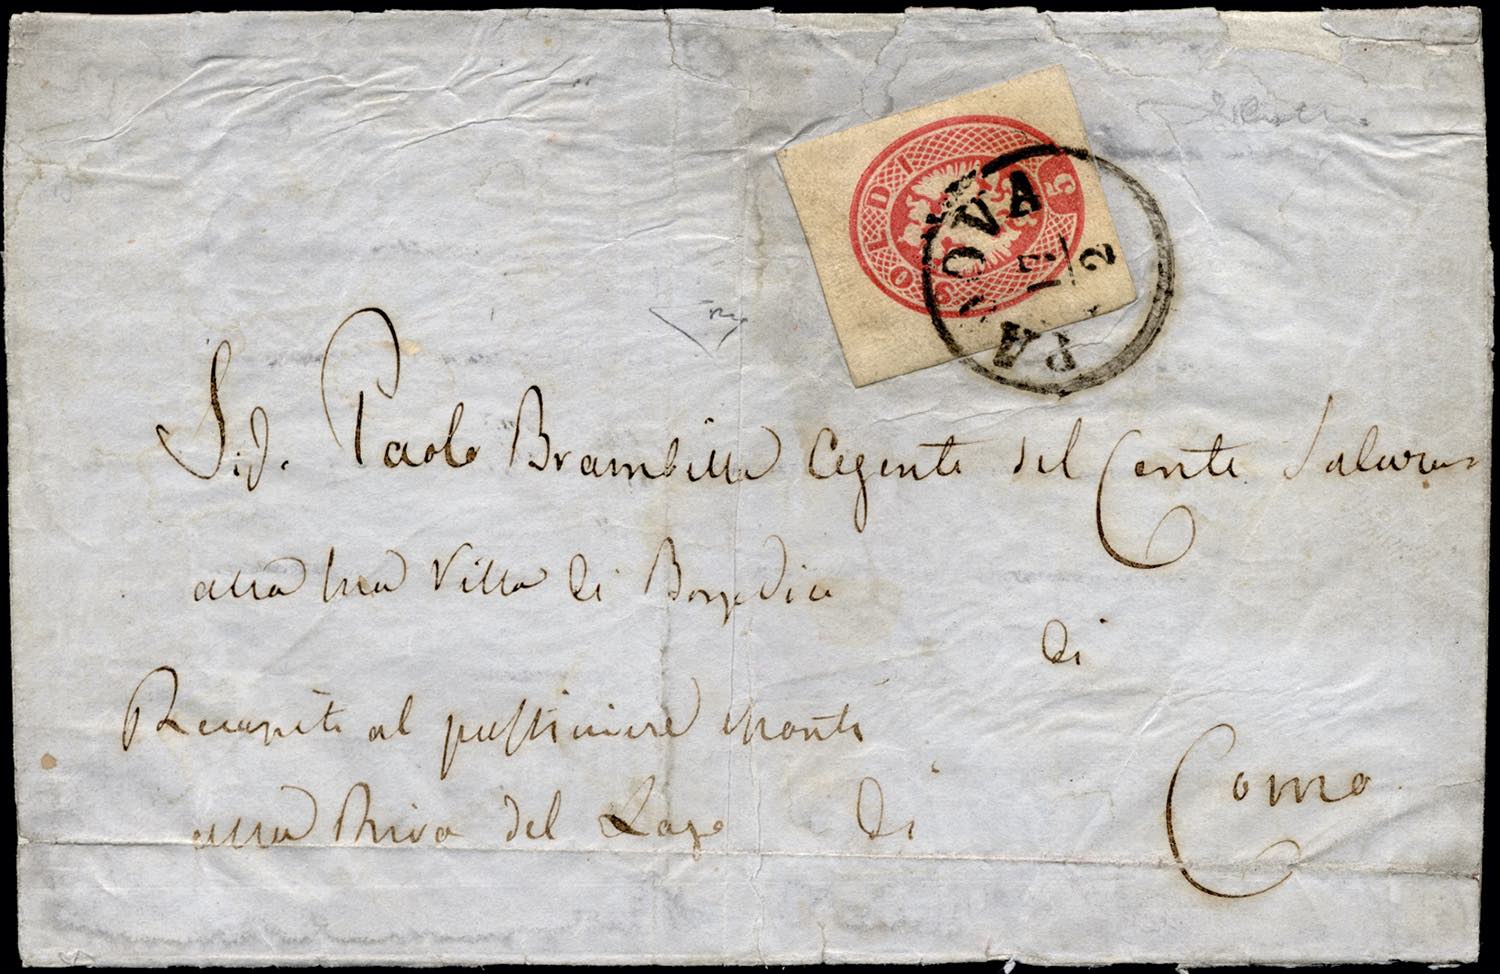 5 SOLDI
PADOVA
17/2
Sig. Paolo Brambilla Agente del Conte
alla sua Villa di
di
Recapito al pasticiere Monti
alla Riva del Lago di
Como